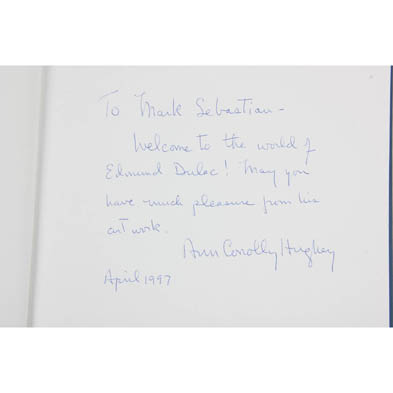 To Mark Sebastian -
Welcome to the world of
Edmund Dulac! May you
have much pleasure from his
art work.
Ann Conolly Hughey
April 1997